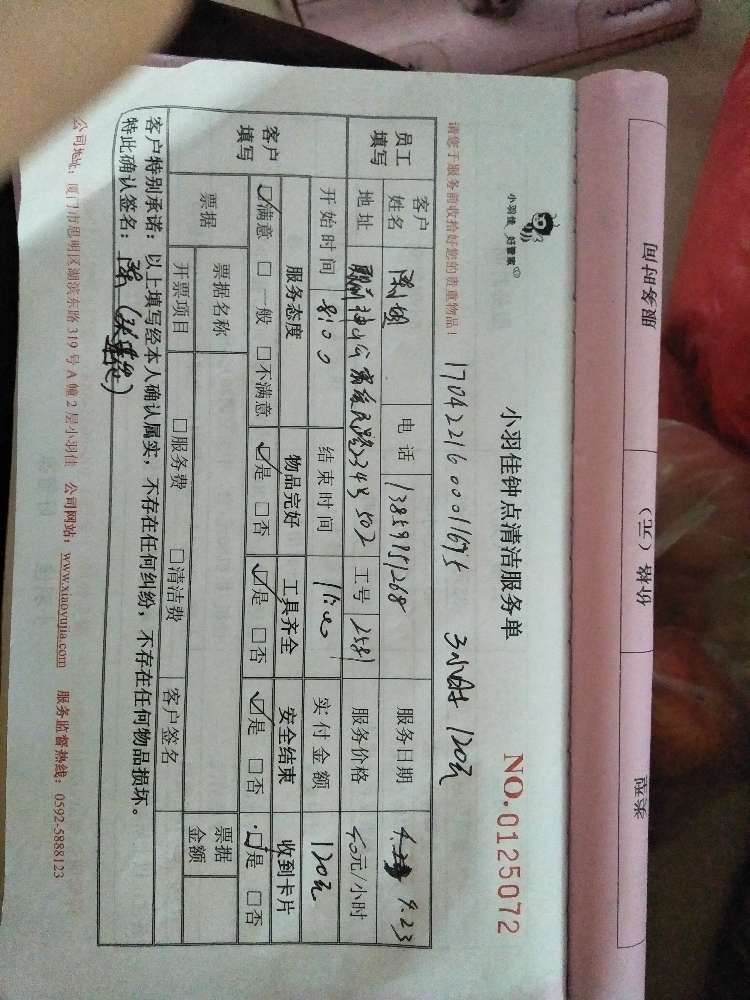 小羽佳 好管家
小羽佳钟点清洁服务单
NO.0125072
请您于服务前收拾好您的贵重物品！
1704221600011695 3小时 120元
员工填写 客户姓名 电话 13859951268 服务日期 4.23
地址 2344 502 工号 2581 服务价格 40元/小时
开始时间 8:00 结束时间 11:00 实付金额 120元
客户填写 服务态度 物品完好 工具齐全 安全结束 收到卡片
☑满意 □一般 □不满意 ☑是 □否 ☑是 □否 ☑是 □否 ☑是 □否
票据 票据名称 票据金额
开票项目 □服务费 □清洁费 客户签名
客户特别承诺：以上填写经本人确认属实，不存在任何纠纷，不存在任何物品损坏。
特此确认签名：
公司地址：厦门市思明区湖滨东路319号A幢2层小羽佳 公司网站：www.xiaoyujia.com 服务监督热线：0592-5888123
服务时间 价格（元） 类型